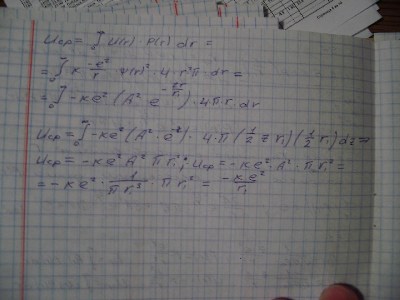 Uср = ∫₀^∞ U(r) · P(r) dr =
= ∫₀^∞ k · -e²/r · ψ(r)² · 4 · r²π · dr =
= ∫₀^∞ -ke² (A² · e^(-2r/r₁)) · 4π · r · dr
Uср = ∫₀^∞ -ke² (A² · e^(-z)) · 4 · π (1/2 z r₁)(1/2 r₁) dz =>
Uср = -ke² A² π r₁² ; Uср = -ke² · A² · π r₁² =
= -ke² · 1/(π r₁³) · π r₁² = -ke²/r₁